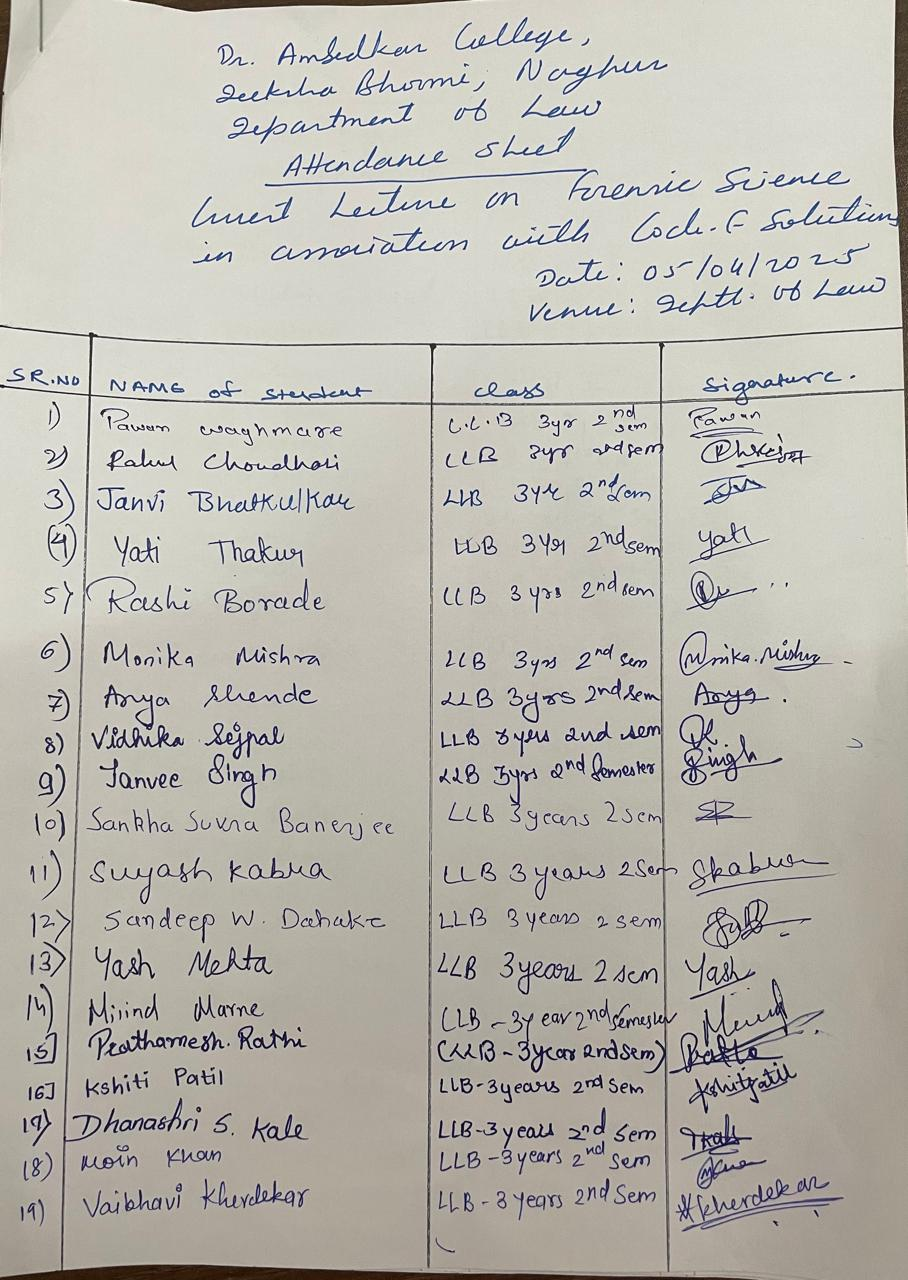 Dr. Ambedkar College,
Deeksha Bhoomi, Nagpur
Department of Law
Attendance Sheet
Guest Lecture on Forensic Science
in association with Code. F Solutions
Date: 05/04/2025
Venue: Deptt. of Law
SR.NO NAME of student class Signature.
1) Pawan Waghmare L.L.B 3yr 2nd sem Pawan
2) Rahul Choudhari LLB 3yr 2nd sem
3) Janvi Bhatkulkar LLB 3yr 2nd sem
(4) Yati Thakur LLB 3yr 2nd sem Yati
5) Rashi Borade LLB 3 yrs 2nd sem
6) Monika Mishra LLB 3yrs 2nd sem Monika.Mishra
7) Arya Shende LLB 3yrs 2nd sem Arya.
8) Vidhika Sejpal LLB 3 yrs 2nd sem
9) Janvee Singh LLB 3yrs 2nd Semester Singh
10) Sankha Suvra Banerjee LLB 3years 2sem
11) Suyash Kabra LLB 3 years 2Sem Skabra
12) Sandeep W. Dahake LLB 3 years 2 sem
13) Yash Mehta LLB 3years 2 sem Yash
14) Milind Marne LLB - 3year 2nd semester Milind
15] Prathamesh. Rathi (LLB - 3year 2nd sem)
16] Kshiti Patil LLB-3years 2nd Sem Kshitipatil
17) Dhanashri S. Kale LLB-3 years 2nd Sem
18) Moin Khan LLB - 3years 2nd sem
19) Vaibhavi Kherdekar LLB - 3 Years 2nd Sem Kherdekar